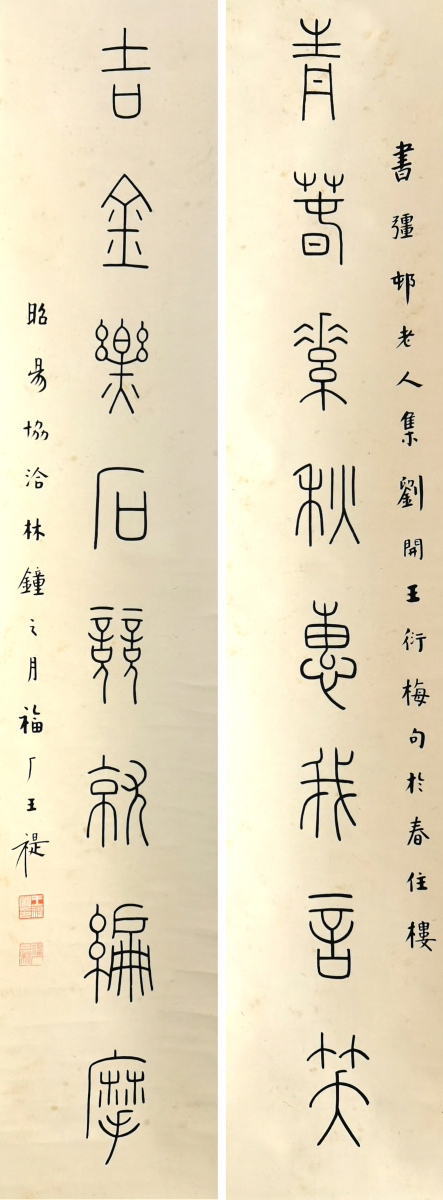 書彊邨老人集劉開王衍梅句於春住樓
青萅素秋惠我言笑
吉金樂石競就編摩
昭昜協洽林鐘之月福厂王禔